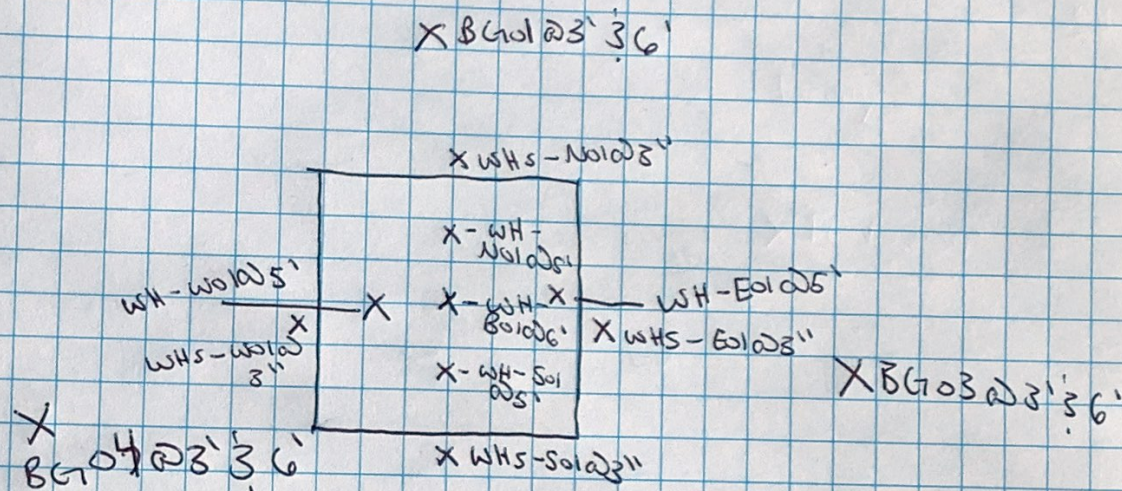 X BG01@3' & 6'
X WHS-N01@3"
X-WH-
N01@5'
WH-W01@5'
X
X-WH-
B01@6'
X
WH-E01@5'
X
WHS-W01@
3"
X WHS-E01@3"
X-WH-S01
@5'
X BG03@3' & 6'
X
BG04@3' & 6'
X WHS-S01@3"